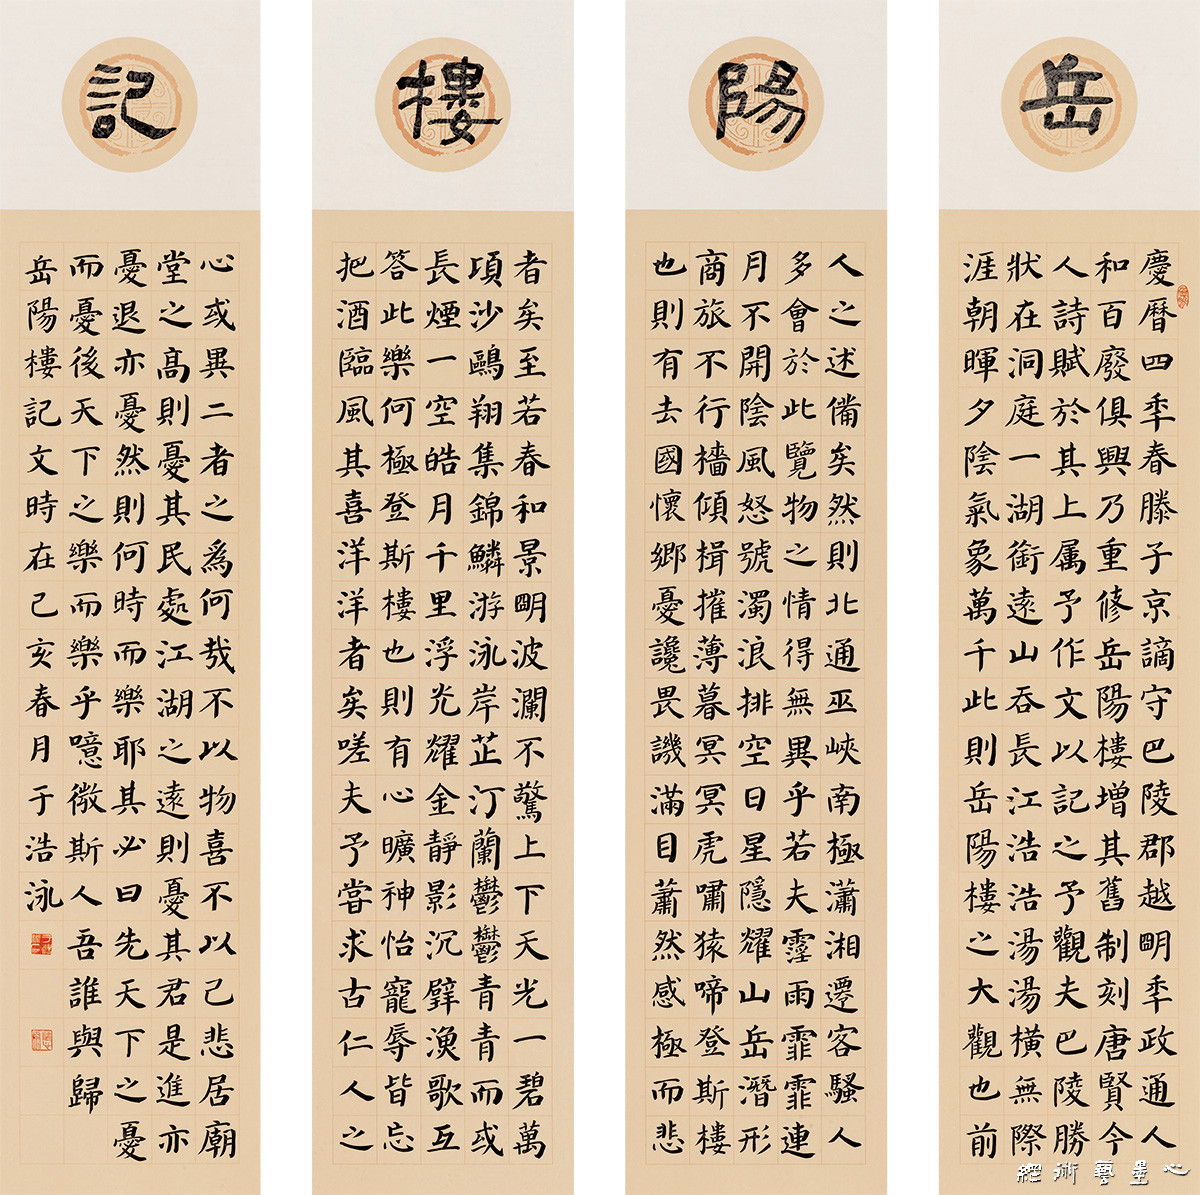 岳
慶曆四秊春滕子京謫守巴陵郡越明秊政通人
和百廢俱興乃重修岳陽樓增其舊制刻唐賢今
人詩賦於其上属予作文以記之予觀夫巴陵勝
狀在洞庭一湖銜遠山吞長江浩浩湯湯橫無際
涯朝暉夕陰氣象萬千此則岳陽樓之大觀也前
陽
人之述備矣然則北通巫峽南極瀟湘遷客騷人
多會於此覽物之情得無異乎若夫霪雨霏霏連
月不開陰風怒號濁浪排空日星隱耀山岳潛形
商旅不行檣傾楫摧薄暮冥冥虎嘯猿啼登斯樓
也則有去國懷鄉憂讒畏譏滿目蕭然感極而悲
樓
者矣至若春和景明波瀾不驚上下天光一碧萬
頃沙鷗翔集錦鱗游泳岸芷汀蘭鬱鬱青青而或
長煙一空皓月千里浮光耀金靜影沉璧漁歌互
答此樂何極登斯樓也則有心曠神怡寵辱皆忘
把酒臨風其喜洋洋者矣嗟夫予嘗求古仁人之
記
心或異二者之爲何哉不以物喜不以己悲居廟
堂之高則憂其民處江湖之遠則憂其君是進亦
憂退亦憂然則何時而樂耶其必曰先天下之憂
而憂後天下之樂而樂乎噫微斯人吾誰與歸
岳陽樓記文時在己亥春月于浩泳
心墨藝術